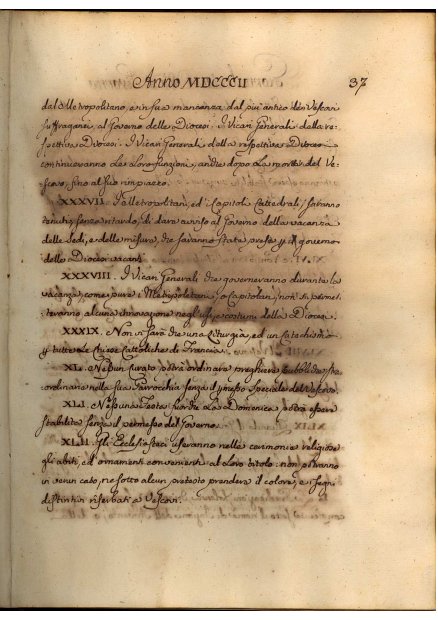 Anno MDCCCII 37
dal Metropolitano, e in sua mancanza dal piu' antico de' Vescovi
suffraganei, al Governo delle Diocesi. I Vicari Generali della re-
spettiva Diocesi. I Vicari Generali della respettiva Diocesi
continueranno le loro funzioni, anche dopo la morte del Ve-
scovo, fino al suo rimpiazzo.
XXXVII. I Metropolitani, ed i Capitoli Cattedrali, saranno
tenuti, senza ritardo, di dare avviso al Governo della vacanza
delle Sedi, e delle misure, che saranno state prese p il governo
delle Diocesi vacanti.
XXXVIII. I Vicari Generali che governeranno durante la
vacanza, come pure i Metropolitani, o Capitolari, non si permet-
teranno alcuna innovazione negl'usi, e costumi della Diocesi.
XXXIX. Non vi sarà che una Liturgia, ed un Catechismo
p tutte le Chiese Cattoliche di Francia.
XL. Nessun curato potrà ordinare preghiere pubbliche stra-
ordinarie nella sua Parrocchia senza il pmesso speciale del Vescovo.
XLI. Nessuna Festa, fuorchè la Domenica potrà essere
stabilita senza il permesso del Governo.
XLII. Gli Ecclesiastici useranno nelle cerimonie religiose
gli abiti, ed ornamenti convenienti al loro titolo: non potranno
in verun caso, ne sotto alcun pretesto prendere il colore, e i segni
distintivi riserbati a' Vescovi.